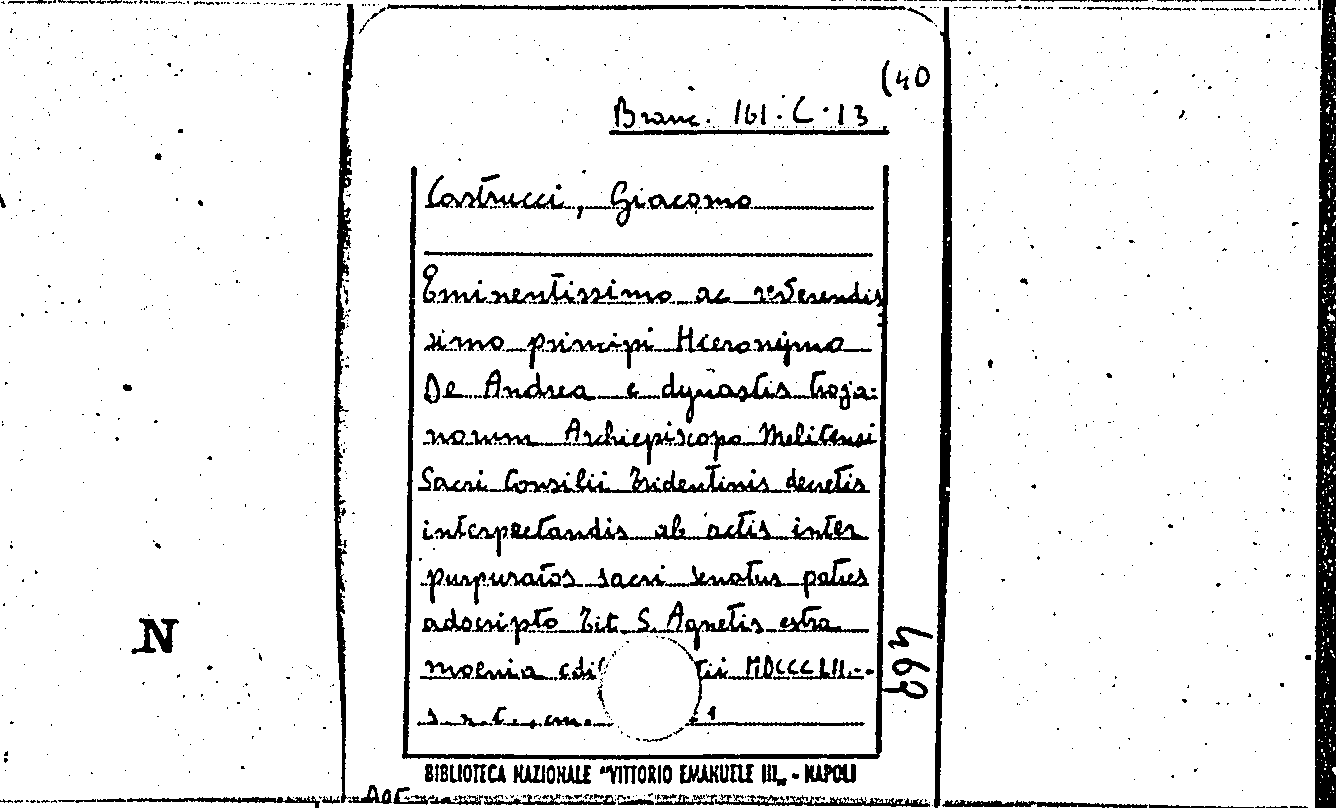 (40
Branc. 161.C.13
Castrucci, Giacomo
Eminentissimo ac reverendis
simo principi Hieronymo
De Andrea e dynastis troja=
norum Archiepiscopo Melitensi
Sacri Consilii Tridentinis decretis
interpretandis ab actis inter
purpuratos sacri senatus patres
adscripto Tit. S. Agnetis extra
moenia MDCCCLII.--
s.n.t., cm.
469
N
BIBLIOTECA NAZIONALE "VITTORIO EMANUELE III„ - NAPOLI